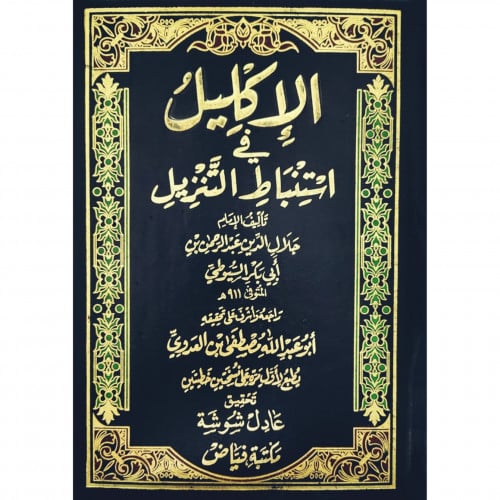 الإكليل
في
استنباط التنزيل
تأليف الإمام
جلال الدين عبد الرحمن بن
أبي بكر السيوطي
المتوفى ٩١١ هـ
راجعه وأشرف على تحقيقه
أبو عبد الله مصطفى بن العدوي
يطبع لأول مرة على نسختين خطيتين
تحقيق
عادل شوشة
مكتبة فياض